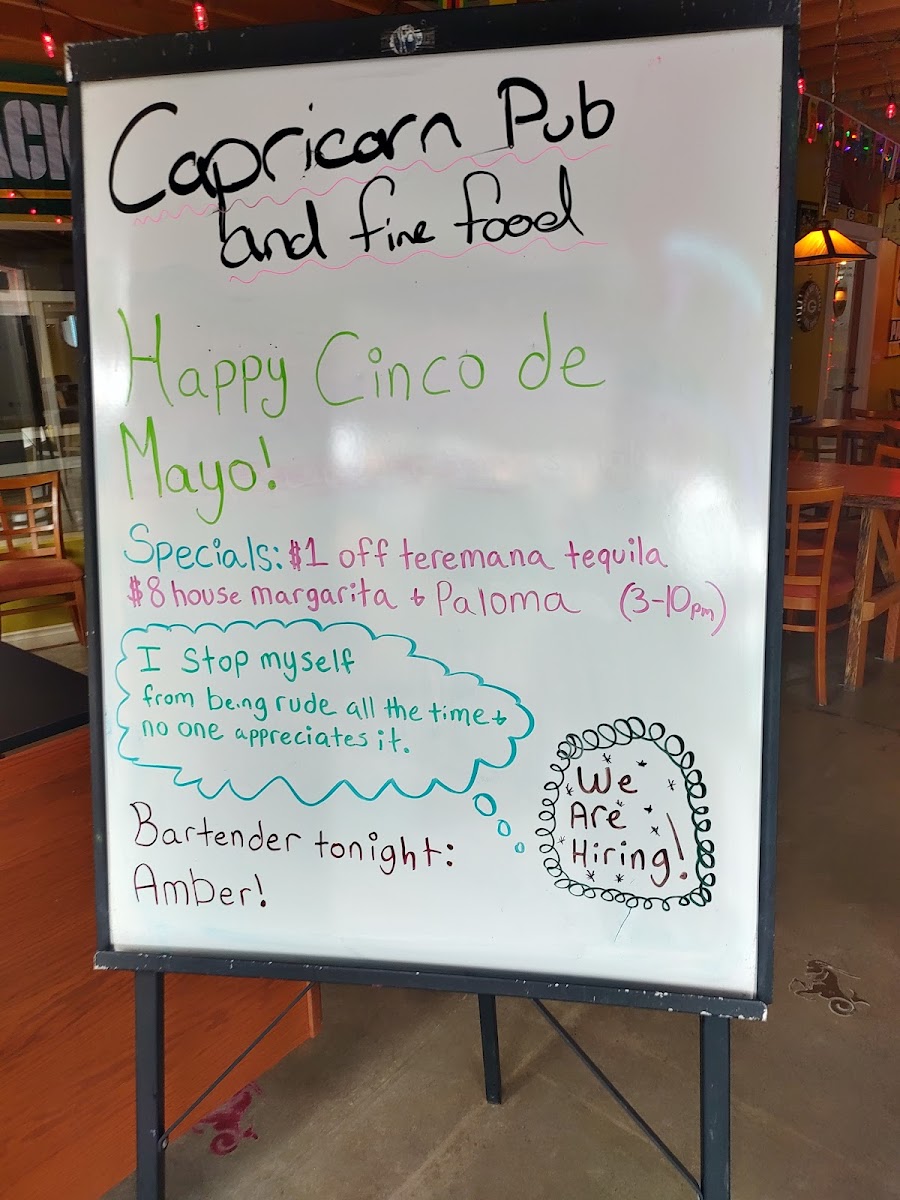 Capricorn Pub
and fine food
Happy Cinco de
Mayo!
Specials: $1 off teremana tequila
$8 house margarita & Paloma (3-10pm)
I stop myself
from being rude all the time &
no one appreciates it.
We
Are
Hiring!
Bartender tonight:
Amber!
ACK